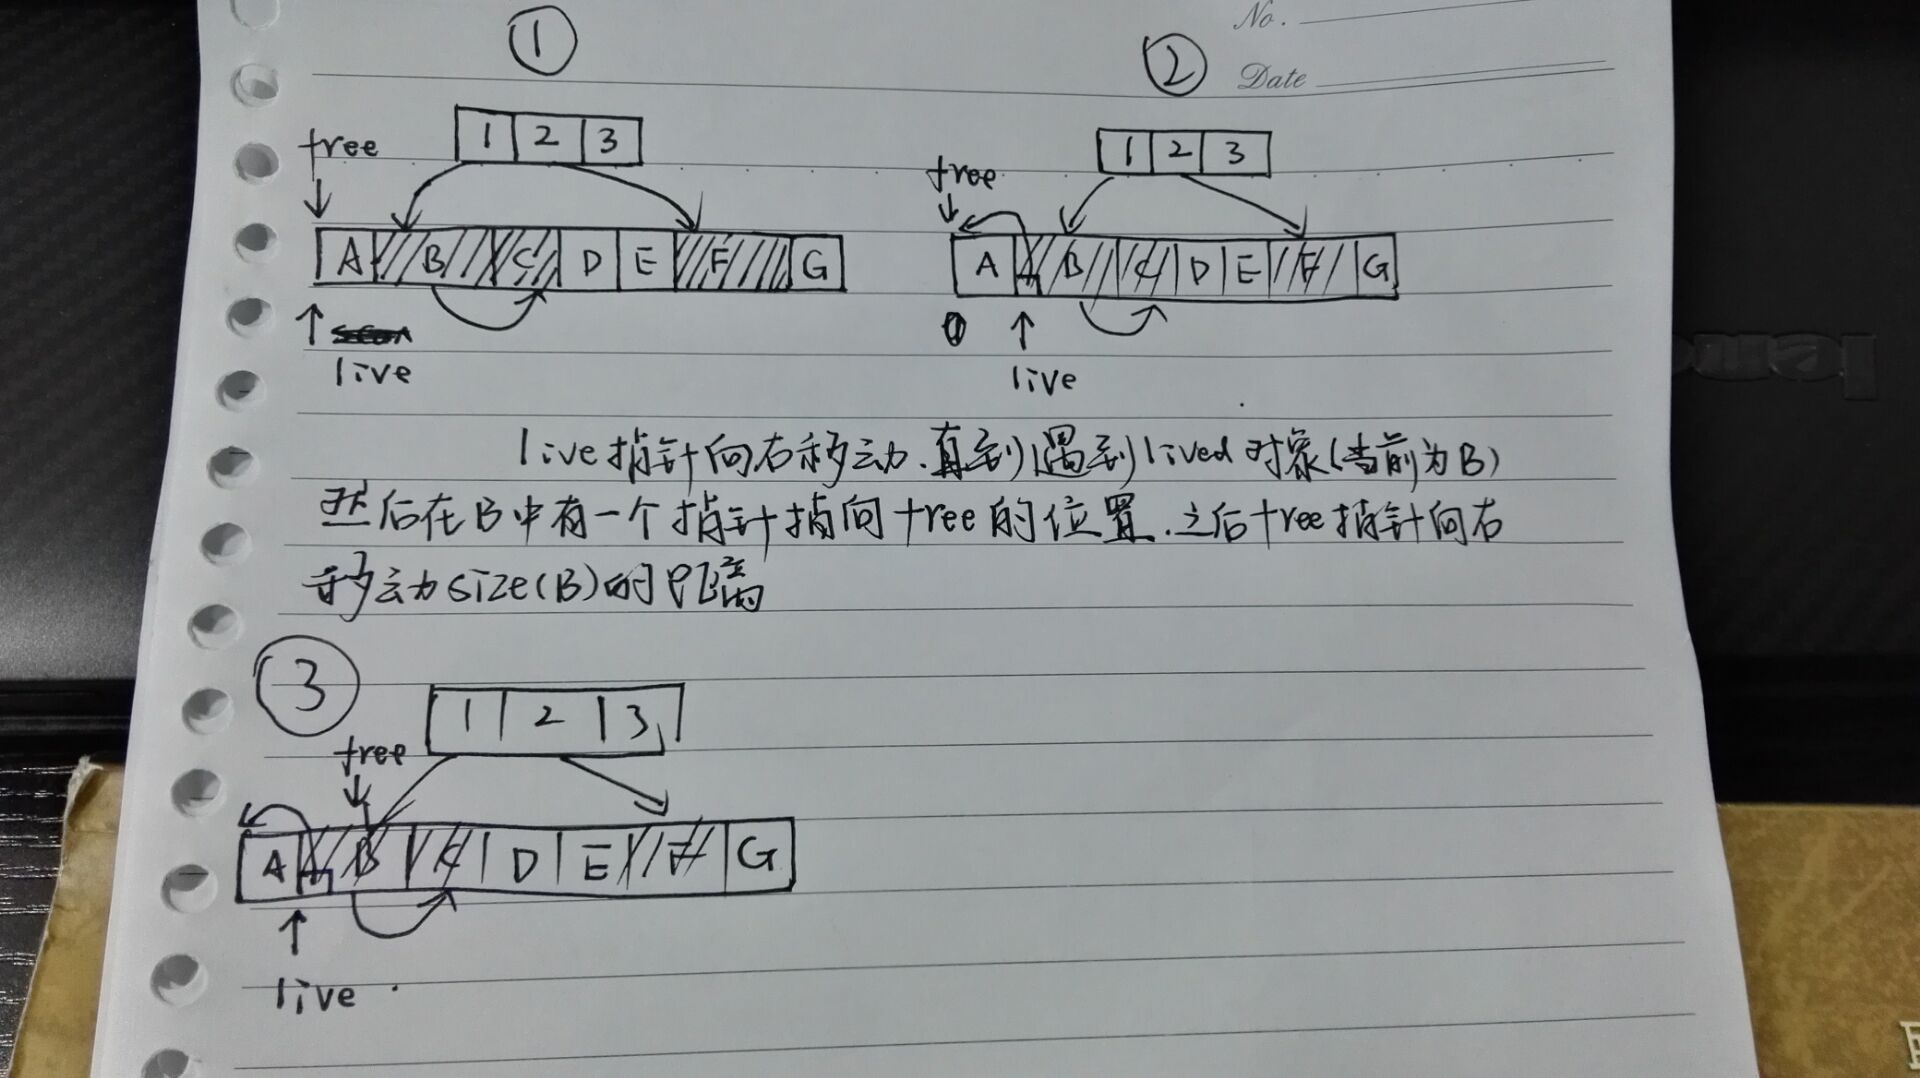 No.
Date
①
②
1 2 3
1 2 3
free
free
A B C D E F G
A B C D E F G
live
live
live指针向右移动.直到遇到lived对象(当前为B)
然后在B中有一个指针指向free的位置.之后free指针向右
移动size(B)的距离
③
1 2 3
free
A B C D E F G
live